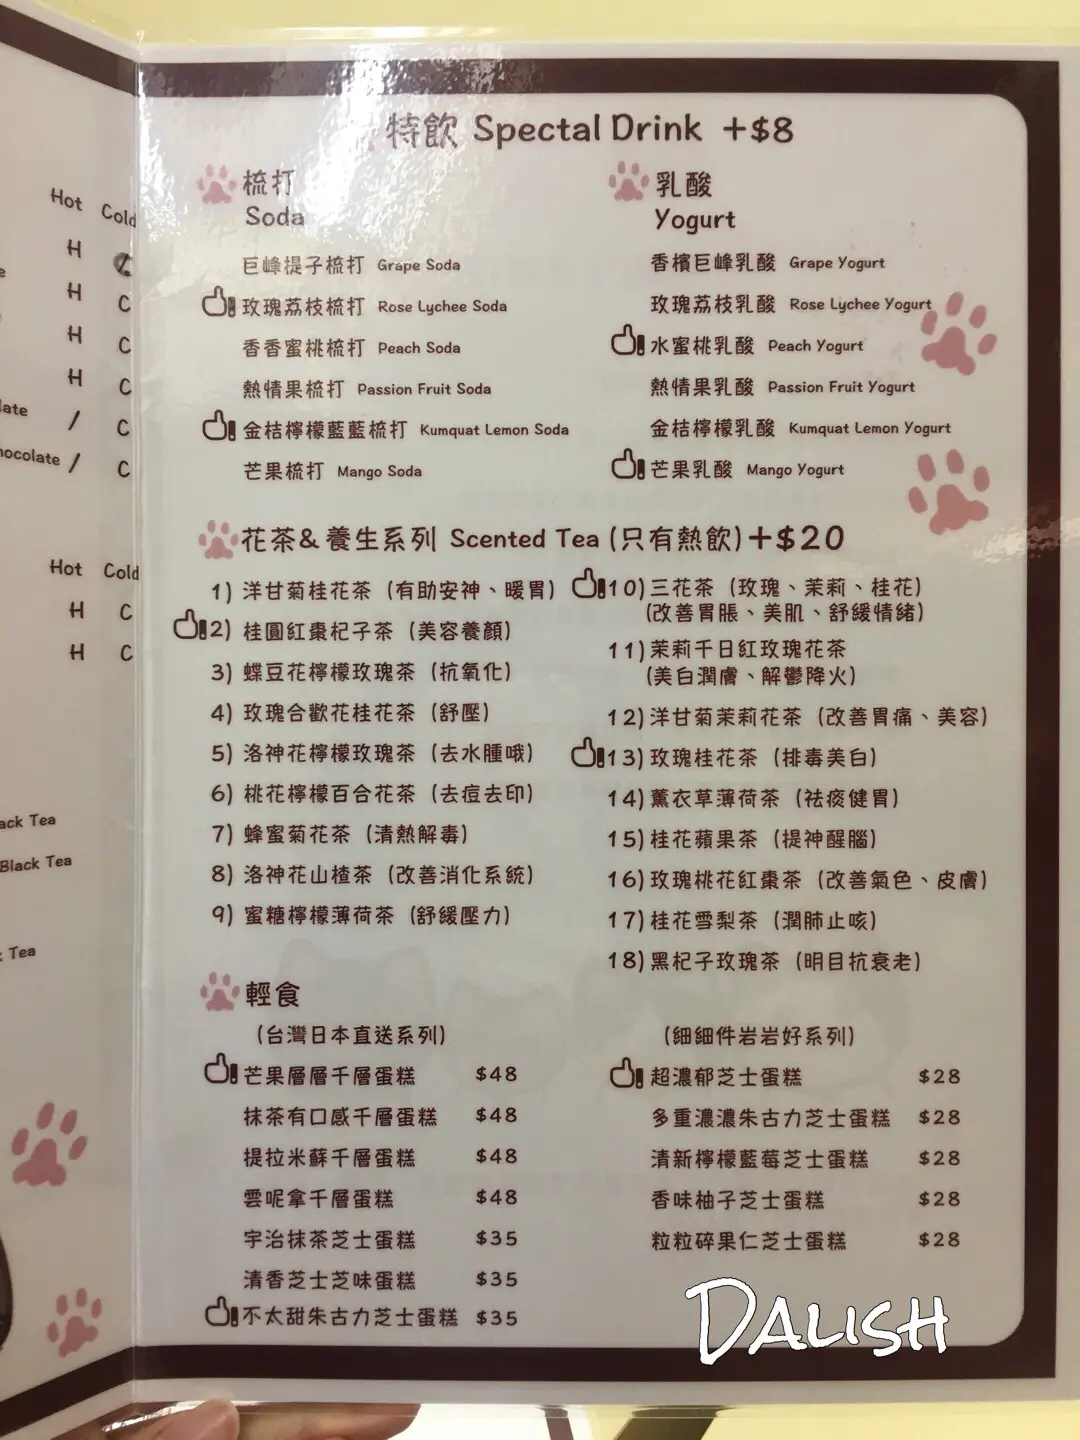 Hot Cold
H
H C
H C
H C
/ C
/ C
Hot Cold
H C
H C
Black Tea
Tea
特飲 Spectal Drink +$8
梳打
Soda
巨峰提子梳打 Grape Soda
玫瑰荔枝梳打 Rose Lychee Soda
香香蜜桃梳打 Peach Soda
熱情果梳打 Passion Fruit Soda
金桔檸檬藍藍梳打 Kumquat Lemon Soda
芒果梳打 Mango Soda
乳酸
Yogurt
香檳巨峰乳酸 Grape Yogurt
玫瑰荔枝乳酸 Rose Lychee Yogurt
水蜜桃乳酸 Peach Yogurt
熱情果乳酸 Passion Fruit Yogurt
金桔檸檬乳酸 Kumquat Lemon Yogurt
芒果乳酸 Mango Yogurt
花茶&養生系列 Scented Tea (只有熱飲)+$20
1) 洋甘菊桂花茶 (有助安神、暖胃)
2) 桂圓紅棗杞子茶 (美容養顏)
3) 蝶豆花檸檬玫瑰茶 (抗氧化)
4) 玫瑰合歡花桂花茶 (舒壓)
5) 洛神花檸檬玫瑰茶 (去水腫哦)
6) 桃花檸檬百合花茶 (去痘去印)
7) 蜂蜜菊花茶 (清熱解毒)
8) 洛神花山楂茶 (改善消化系統)
9) 蜜糖檸檬薄荷茶 (舒緩壓力)
10) 三花茶 (玫瑰、茉莉、桂花)
(改善胃脹、美肌、舒緩情緒)
11) 茉莉千日紅玫瑰花茶
(美白潤膚、解鬱降火)
12) 洋甘菊茉莉花茶 (改善胃痛、美容)
13) 玫瑰桂花茶 (排毒美白)
14) 薰衣草薄荷茶 (祛痰健胃)
15) 桂花蘋果茶 (提神醒腦)
16) 玫瑰桃花紅棗茶 (改善氣色、皮膚)
17) 桂花雪梨茶 (潤肺止咳)
18) 黑杞子玫瑰茶 (明目抗衰老)
輕食
(台灣日本直送系列)
芒果層層千層蛋糕 $48
抹茶有口感千層蛋糕 $48
提拉米蘇千層蛋糕 $48
雲呢拿千層蛋糕 $48
宇治抹茶芝士蛋糕 $35
清香芝士芝味蛋糕 $35
不太甜朱古力芝士蛋糕 $35
(細細件岩岩好系列)
超濃郁芝士蛋糕 $28
多重濃濃朱古力芝士蛋糕 $28
清新檸檬藍莓芝士蛋糕 $28
香味柚子芝士蛋糕 $28
粒粒碎果仁芝士蛋糕 $28
DALISH